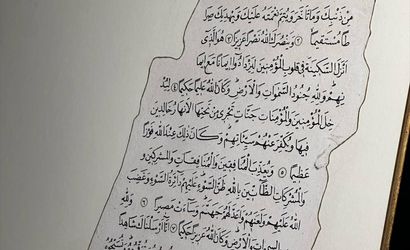 مِنْ ذَنْبِكَ وَمَا تَأَخَّرَ وَيُتِمَّ نِعْمَتَهُ عَلَيْكَ وَيَهْدِيَكَ صِرَا
طًا مُسْتَقِيمًا ﴿٢﴾ وَيَنْصُرَكَ اللهُ نَصْرًا عَزِيزًا ﴿٣﴾ هُوَ الَّذِي
أَنْزَلَ السَّكِينَةَ فِي قُلُوبِ الْمُؤْمِنِينَ لِيَزْدَادُوا إِيمَانًا مَعَ إِيمَا
نِهِمْ وَلِلَّهِ جُنُودُ السَّمٰوَاتِ وَالْأَرْضِ وَكَانَ اللهُ عَلِيمًا حَكِيمًا ﴿٤﴾ لِيُدْ
خِلَ الْمُؤْمِنِينَ وَالْمُؤْمِنَاتِ جَنَّاتٍ تَجْرِي مِنْ تَحْتِهَا الْأَنْهَارُ خَالِدِينَ
فِيهَا وَيُكَفِّرَ عَنْهُمْ سَيِّئَاتِهِمْ وَكَانَ ذٰلِكَ عِنْدَ اللهِ فَوْزًا
عَظِيمًا ﴿٥﴾ وَيُعَذِّبَ الْمُنَافِقِينَ وَالْمُنَافِقَاتِ وَالْمُشْرِكِينَ
وَالْمُشْرِكَاتِ الظَّانِّينَ بِاللهِ ظَنَّ السَّوْءِ عَلَيْهِمْ دَائِرَةُ السَّوْءِ وَغَضِبَ
اللهُ عَلَيْهِمْ وَلَعَنَهُمْ وَأَعَدَّ لَهُمْ جَهَنَّمَ وَسَاءَتْ مَصِيرًا ﴿٦﴾ وَلِلَّهِ
السَّمٰوَاتِ وَالْأَرْضِ وَكَانَ اللهُ عَزِيزًا حَكِيمًا ﴿٧﴾ إِنَّا أَرْسَلْنَاكَ شَاهِدًا